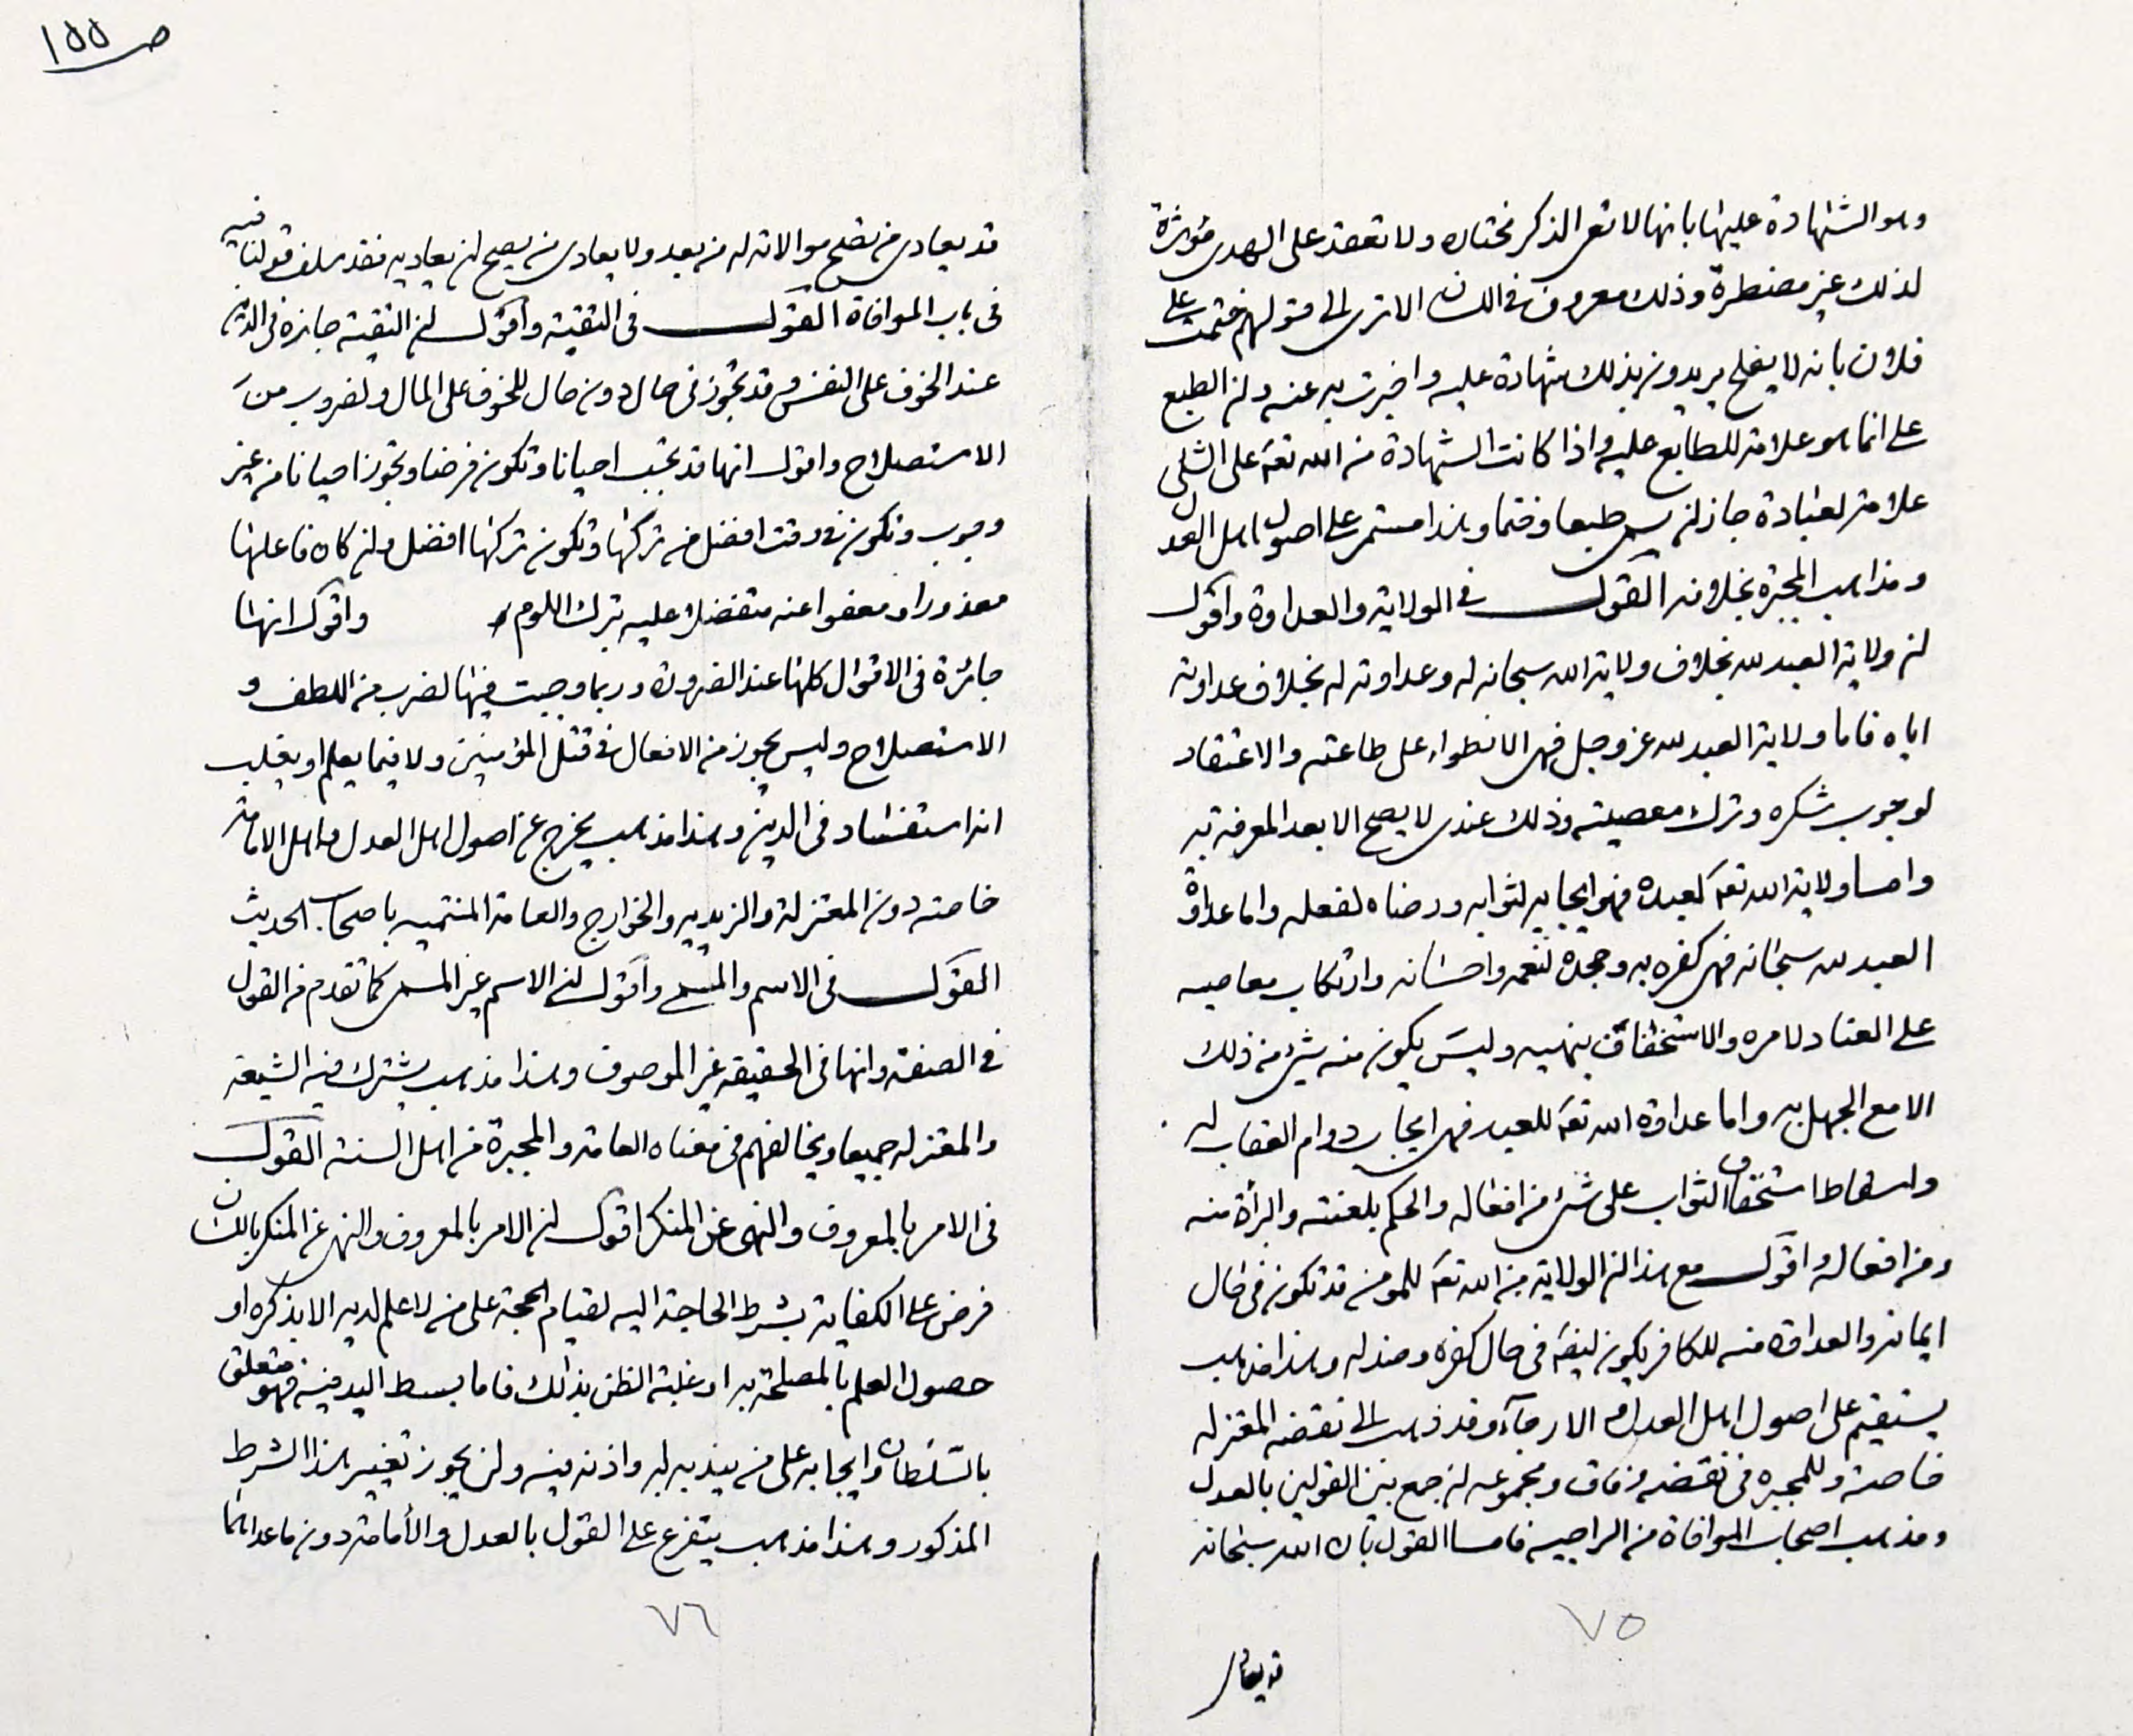 ص ١٥٥
وهو الشهادة عليها بانها لا تعى الذكر مختارة ولا تعتقد على الهدى مؤثرة
لذلك غير مضطرة وذلك معروف فى اللسان الا ترى الى قولهم ختمت على
فلان بانه لا يفلح يريدون بذلك شهادة عليه واخبرت به عنه وان الطبع
على انما هو علامة للطابع عليه واذا كانت الشهادة من الله تعـ على الشى
علامة لعباده جاز ان يسمى طبعا وختما وهذا مستمر على اصول اهل العدل
ومذاهب المجبرة بخلافه القول فى الولاية والعداوة واقول
ان ولاية العبد لله بخلاف ولاية الله سبحانه له وعداوته له بخلاف عداوته
اياه فاما ولاية العبد لله عز وجل فهى الانطواء على طاعته والاعتقاد
لوجوب شكره وترك معصيته وذلك عندى لا يصح الا بعد المعرفة به
واما ولاية الله تعـ لعبده فهو ايجابه لثوابه ورضاه لفعله واما عداوة
العبد لله سبحانه فهى كفره به وجحده لنعمه واحسانه وارتكاب معاصيه
على العناد لامره والاستخفاف بنهيه وليس يكون منه شىء من ذلك
الا مع الجهل به واما عداوة الله تعـ للعبد فهى ايجاب دوام العقاب له
واسقاط استحقاق الثواب على شىء من افعاله والحكم بلعنته والبرأة منه
ومن افعاله واقول مع هذا ان الولاية من الله تعـ للمومن قد تكون فى حال
ايمانه والعداوة منه للكافر يكون ايضـ فى حال كفره وضلاله وهذا مذهب
يستقيم على اصول اهل العدل والارجآء وقد ذهب الى بعضه المعتزله
خاصة وللمجبره فى بعضه وفاق ومجموعه لمن جمع بين القولين بالعدل
ومذهب اصحاب الموافاة من الراجيه فاما القول بان الله سبحانه
٧٥
قد يعادى
قد يعادى من تصح موالاته له من بعد ولا يعادى من يصح ان يعاديه فقد سلف قولنا فيه
فى باب الموافاة القول فى التقية واقول ان التقية جايزة فى الدين
عند الخوف على النفس وقد تجوز فى حال دون حال للخوف على المال ولضروب من
الاستصلاح واقول انها قد تجب احيانا وتكون فرضا وتجوز احيانا من غير
وجوب وتكون فى وقت افضل من تركها وتكون تركها افضل وان كان فاعلها
معذورا ومعفوا عنه متفضلا عليه بترك اللوم واقول انها
جائزة فى الاقوال كلها عند الضرورة وربما وجبت فيها لضرب من اللطف و
الاستصلاح وليس يجوز من الافعال فى قتل المؤمنين ولا فيما يعلم او يغلب
انه استفساد فى الدين وهذا مذهب يخرج عن اصول اهل العدل واهل الامامة
خاصة دون المعتزلة والزيديه والخوارج والعامة المنتميه باصحاب الحديث
القول فى الاسم والمسمى واقول ان الاسم غير المسمى كما تقدم من القول
فى الصفة وانها فى الحقيقه غير الموصوف وهذا مذهب يشترك فيه الشيعة
والمعتزله جميعا ويخالفهم فى معناه العامة والمجبرة من اهل السنة القول
فى الامر بالمعروف والنهى عن المنكر اقول ان الامر بالمعروف والنهى عن المنكر باللسان
فرض على الكفاية بشرط الحاجة اليه لقيام الحجة على من لا علم لديه الا بذكره او
حصول العلم بالمصلحة به او غلبة الظن بذلك فاما بسط اليد فيه فهو متعلق
بالسلطان وايجابه على من يندبه له واذنه فيه ولن يجوز تغيير هذا الشرط
المذكور وهذا مذهب يتفرع على القول بالعدل والأمامة دون ما عداهما
٧٦